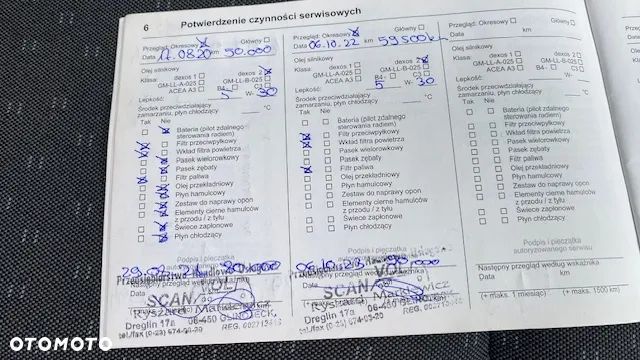 6 Potwierdzenie czynności serwisowych
Przegląd: Okresowy Główny
Data 17.08.20 km 50.000
Olej silnikowy
Klasa: dexos 1 dexos 2
GM-LL-A-025 GM-LL-B-025
ACEA A3 B4- C3
Lepkość: 5 W- 30
Środek przeciwdziałający
zamarzaniu, płyn chłodzący °C
Tak Nie
Bateria (pilot zdalnego
sterowania radiem)
Filtr przeciwpyłkowy
Wkład filtra powietrza
Pasek wielorowkowy
Pasek zębaty
Filtr paliwa
Olej przekładniowy
Płyn hamulcowy
Zestaw do naprawy opon
Elementy cierne hamulców
z przodu / z tyłu
Świece zapłonowe
Płyn chłodzący
Podpis i pieczątka
SCAN
Ryszard
Dreglin 17a 06-450
tel./fax (0-23) 674-03-20 REG.
Przegląd: Okresowy Główny
Data 06.10.22 km 59.500 km
Olej silnikowy
Klasa: dexos 1 dexos 2
GM-LL-A-025 GM-LL-B-025
ACEA A3 B4- C3
Lepkość: 5 W- 30
Środek przeciwdziałający
zamarzaniu, płyn chłodzący °C
Tak Nie
Bateria (pilot zdalnego
sterowania radiem)
Filtr przeciwpyłkowy
Wkład filtra powietrza
Pasek wielorowkowy
Pasek zębaty
Filtr paliwa
Olej przekładniowy
Płyn hamulcowy
Zestaw do naprawy opon
Elementy cierne hamulców
z przodu / z tyłu
Świece zapłonowe
Płyn chłodzący
Podpis i pieczątka
06.10.23
SCAN
Ryszard
Dreglin 17a 06-450
tel./fax (0-23) 674-03-20 REG.
Przegląd: Okresowy Główny
Data km
Olej silnikowy
Klasa: dexos 1 dexos 2
GM-LL-A-025 GM-LL-B-025
ACEA A3 B4- C3
Lepkość: W-
Środek przeciwdziałający
zamarzaniu, płyn chłodzący °C
Tak Nie
Bateria (pilot zdalnego
sterowania radiem)
Filtr przeciwpyłkowy
Wkład filtra powietrza
Pasek wielorowkowy
Pasek zębaty
Filtr paliwa
Olej przekładniowy
Płyn hamulcowy
Zestaw do naprawy opon
Elementy cierne hamulców
z przodu / z tyłu
Świece zapłonowe
Płyn chłodzący
Podpis i pieczątka
autoryzowanego serwisu
Następny przegląd według wskaźnika
Data km
(+ maks. 1 miesiąc) (+ maks. 1500 km)
OTOMOTO